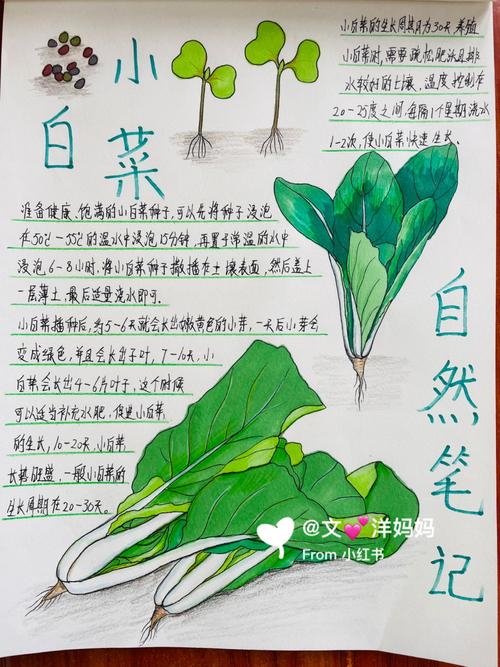 小
白
菜
小白菜的生长周期为30天,养殖
小白菜时,需要疏松肥沃且排
水较好的土壤,温度控制在
20-25度之间,每隔1个星期浇水
1-2次,使小白菜快速生长。
准备健康、饱满的小白菜种子,可以先将种子浸泡
在50℃-55℃的温水中浸泡15分钟,再置于常温的水中
浸泡6-8小时,将小白菜种子撒播在土壤表面,然后盖上
一层薄土,最后适量浇水即可。
小白菜播种后,约5-6天就会长出嫩黄色的小芽,一天后小芽会
变成绿色,并且会长出子叶,7-10天,小
白菜会长出4-6片叶子,这个时候
可以适当补充水肥,促进小白菜
的生长,10-20天,小白菜
长势旺盛,一般小白菜的
生长周期在20-30天。
自
然
笔
记
@文💕洋妈妈
From 小红书